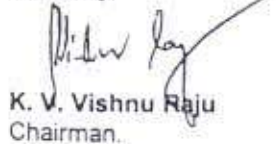 K. V. Vishnu Raju
Chairman.